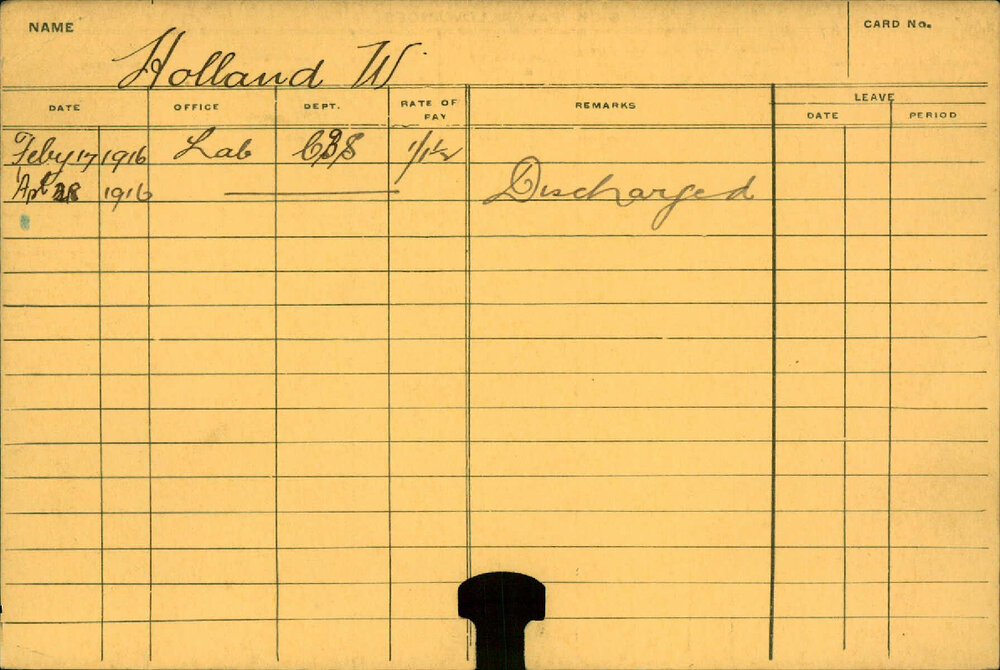 NAME
CARD No.
Holland W
DATE OFFICE DEPT. RATE OF PAY REMARKS LEAVE
DATE PERIOD
Feby 17 1916 Lab 1/1½
Apl 28 1916 Discharged